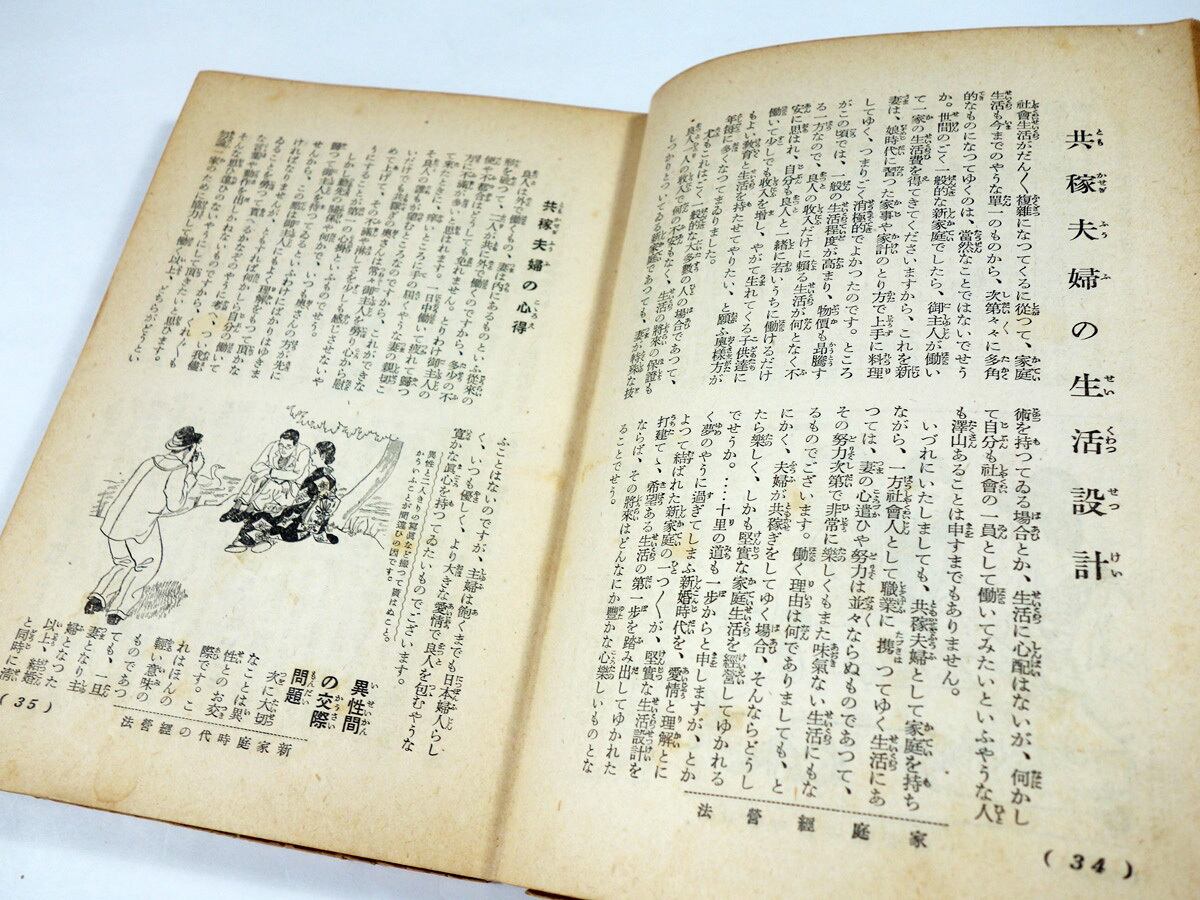 共稼夫婦の生活設計
社會生活がだん〱複雜になつてくるに從つて、家庭
生活も今までのやうな單一のものから、次第々々に多角
的なものになつてゆくのは、當然なことではないでせう
か。世間のごく一般的な新家庭でしたら、御主人が働い
て一家の生活費を得てきてくださいますから、これを新
妻は、娘時代に習つた家事や家計のとり方で上手に料理
してゆく、つまりごく消極的でよかつたのです。ところ
がこの頃では、一般の生活程度が高まり、物價も昂騰す
る一方なので、良人の收入だけに賴る生活が何となく不
安に思はれ、自分も良人と一緒に若いうちに働けるだけ
働いて少しでも收入を增し、やがて生れてくる子供達に
もよい敎育と生活を持たせてやりたい、と願ふ奧樣方が
年每に多くなつてまゐりました。
尤もこれはごく一般的な大多數の人の場合であつて、
良人一人の收入で何の不安もなく、生活の將來の保證も
しつかりとついてゐる新家庭であつても、妻が特殊な技
術を持つてゐる場合とか、生活に心配はないが、何かし
て自分も社會の一員として働いてみたいといふやうな人
も澤山あることは申すまでもありません。
いづれにいたしましても、共稼夫婦として家庭を持ち
ながら、一方社會人として職業に携つてゆく生活にあ
つては、妻の心遣ひや努力は並々ならぬものであつて、
その努力次第で非常に樂しくもまた味氣ない生活にもな
るものでございます。働く理由は何でありましても、と
にかく、夫婦が共稼ぎをしてゆく場合、そんならどうし
たら樂しく、しかも堅實な家庭生活を經營してゆかれる
でせうか。‥‥十里の道も一步からと申しますが、とか
く夢のやうに過ぎてしまふ新婚時代を、愛情と理解とに
よつて結ばれた新家庭の一つ〱が、堅實な生活設計を
打建てゝ、希望ある生活の第一步を踏み出してゆかれた
ならば、その將來はどんなにか豐かな心樂しいものとな
ることでせう。
家庭經營法
(34)
共稼夫婦の心得
良人は外で働くもの、妻は內にあるものといふ從來の
を破つて、二人が共に外で働くのですから、多少の不
便や不都合はどうしても免れません。とりわけ御主人の
方に不滿が多いと思はれます。一日中働いて疲れて歸つ
て來たときに、痒いところに手の屆くやうな妻の親切こ
そ良人の誰もが望むところなのでせうから、これができな
い共稼ぎの奧さんは常に御主人を勞り心から慰
めて上げて、その不滿や淋しさを少しでも感じさせないや
うにすることが
しかし動もすると、いつも奧さんの方が先に
歸つて御夕飯の仕度や何かで、
せんから、
ければなりませんが、このにばかりはゆきま
ることを御主人によく理解をもつて頂
な言葉で勞つて貰へれば
そんな氣が動作に出しかねないものです。つい我儘
勿論、家のために協力して働く以上、どちらがどうとい
ふことはないのですが、主婦は飽くまでも日本婦人らし
く、いつも優しく、より大きな愛情で良人を包むやうな
寬かな眞心を持つてゐたいものでございます。
異性と二人きりの寫眞など撮つて貰はぬこと。
かういふことが間違ひの因です。
異性間
の交際
問題
次に大切
なことは異
性とのお交
際です。こ
れはほんの
輕い意味の
ものであつ
ても、一旦
妻となり主
婦となつた
以上、結婚
と同時に淸
新家庭時代の經營法
(35)